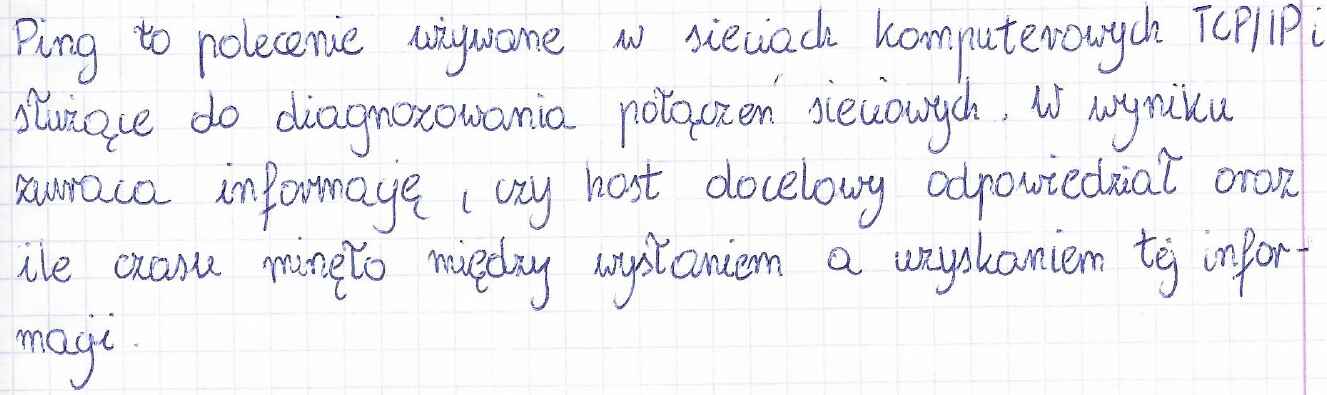 Ping to polecenie używane w sieciach komputerowych TCP/IP i
służące do diagnozowania połączeń sieciowych. W wyniku
zwraca informację, czy host docelowy odpowiedział oraz
ile czasu minęło między wysłaniem a uzyskaniem tej infor-
macji.